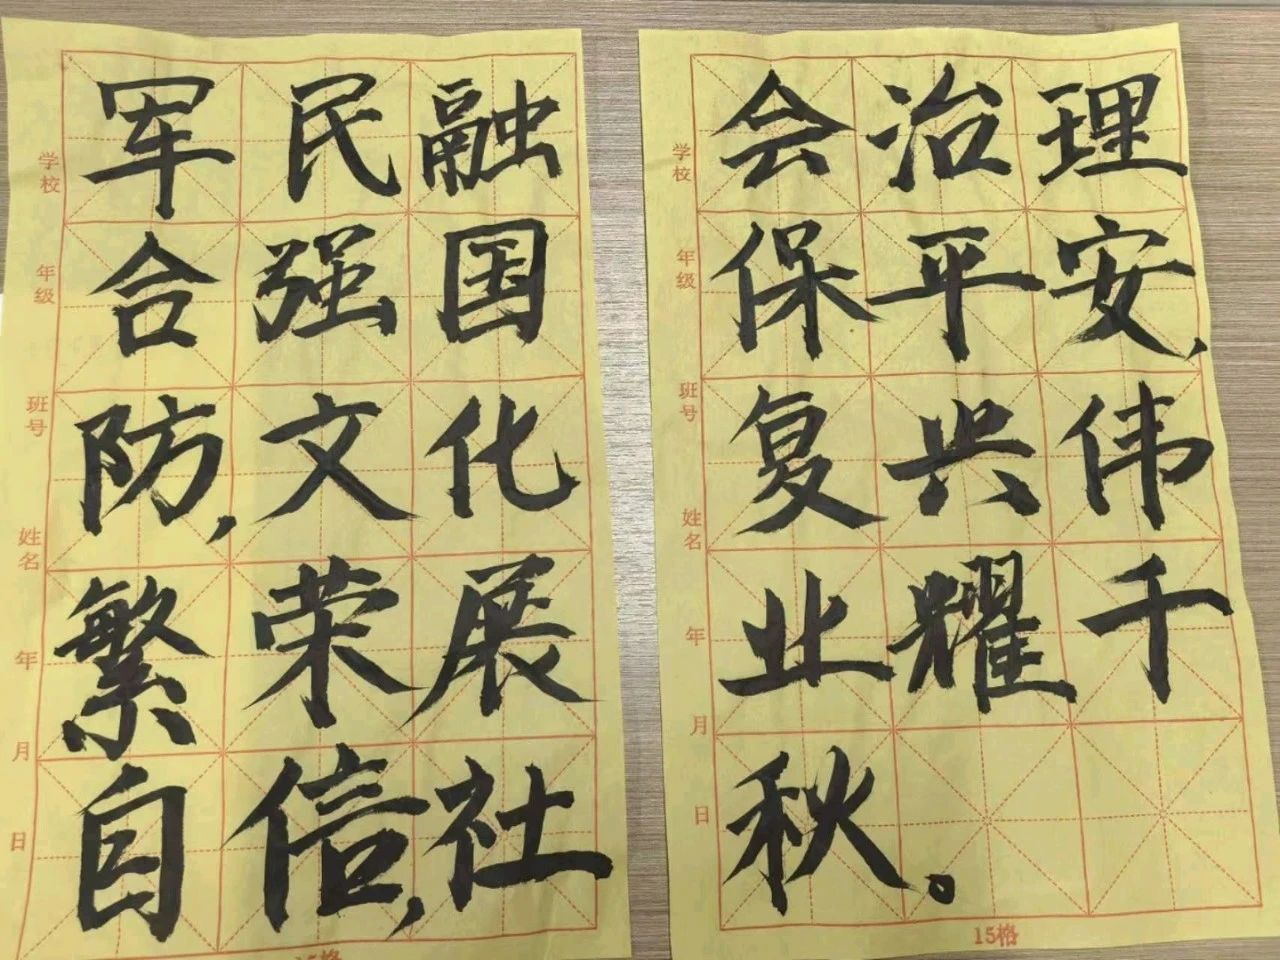 军民融
合强国
防,文化
繁荣展
自信,社
学校
年级
班号
姓名
年
月
日
会治理
保平安,
复兴伟
业耀千
秋。
学校
年级
班号
姓名
年
月
日
15格